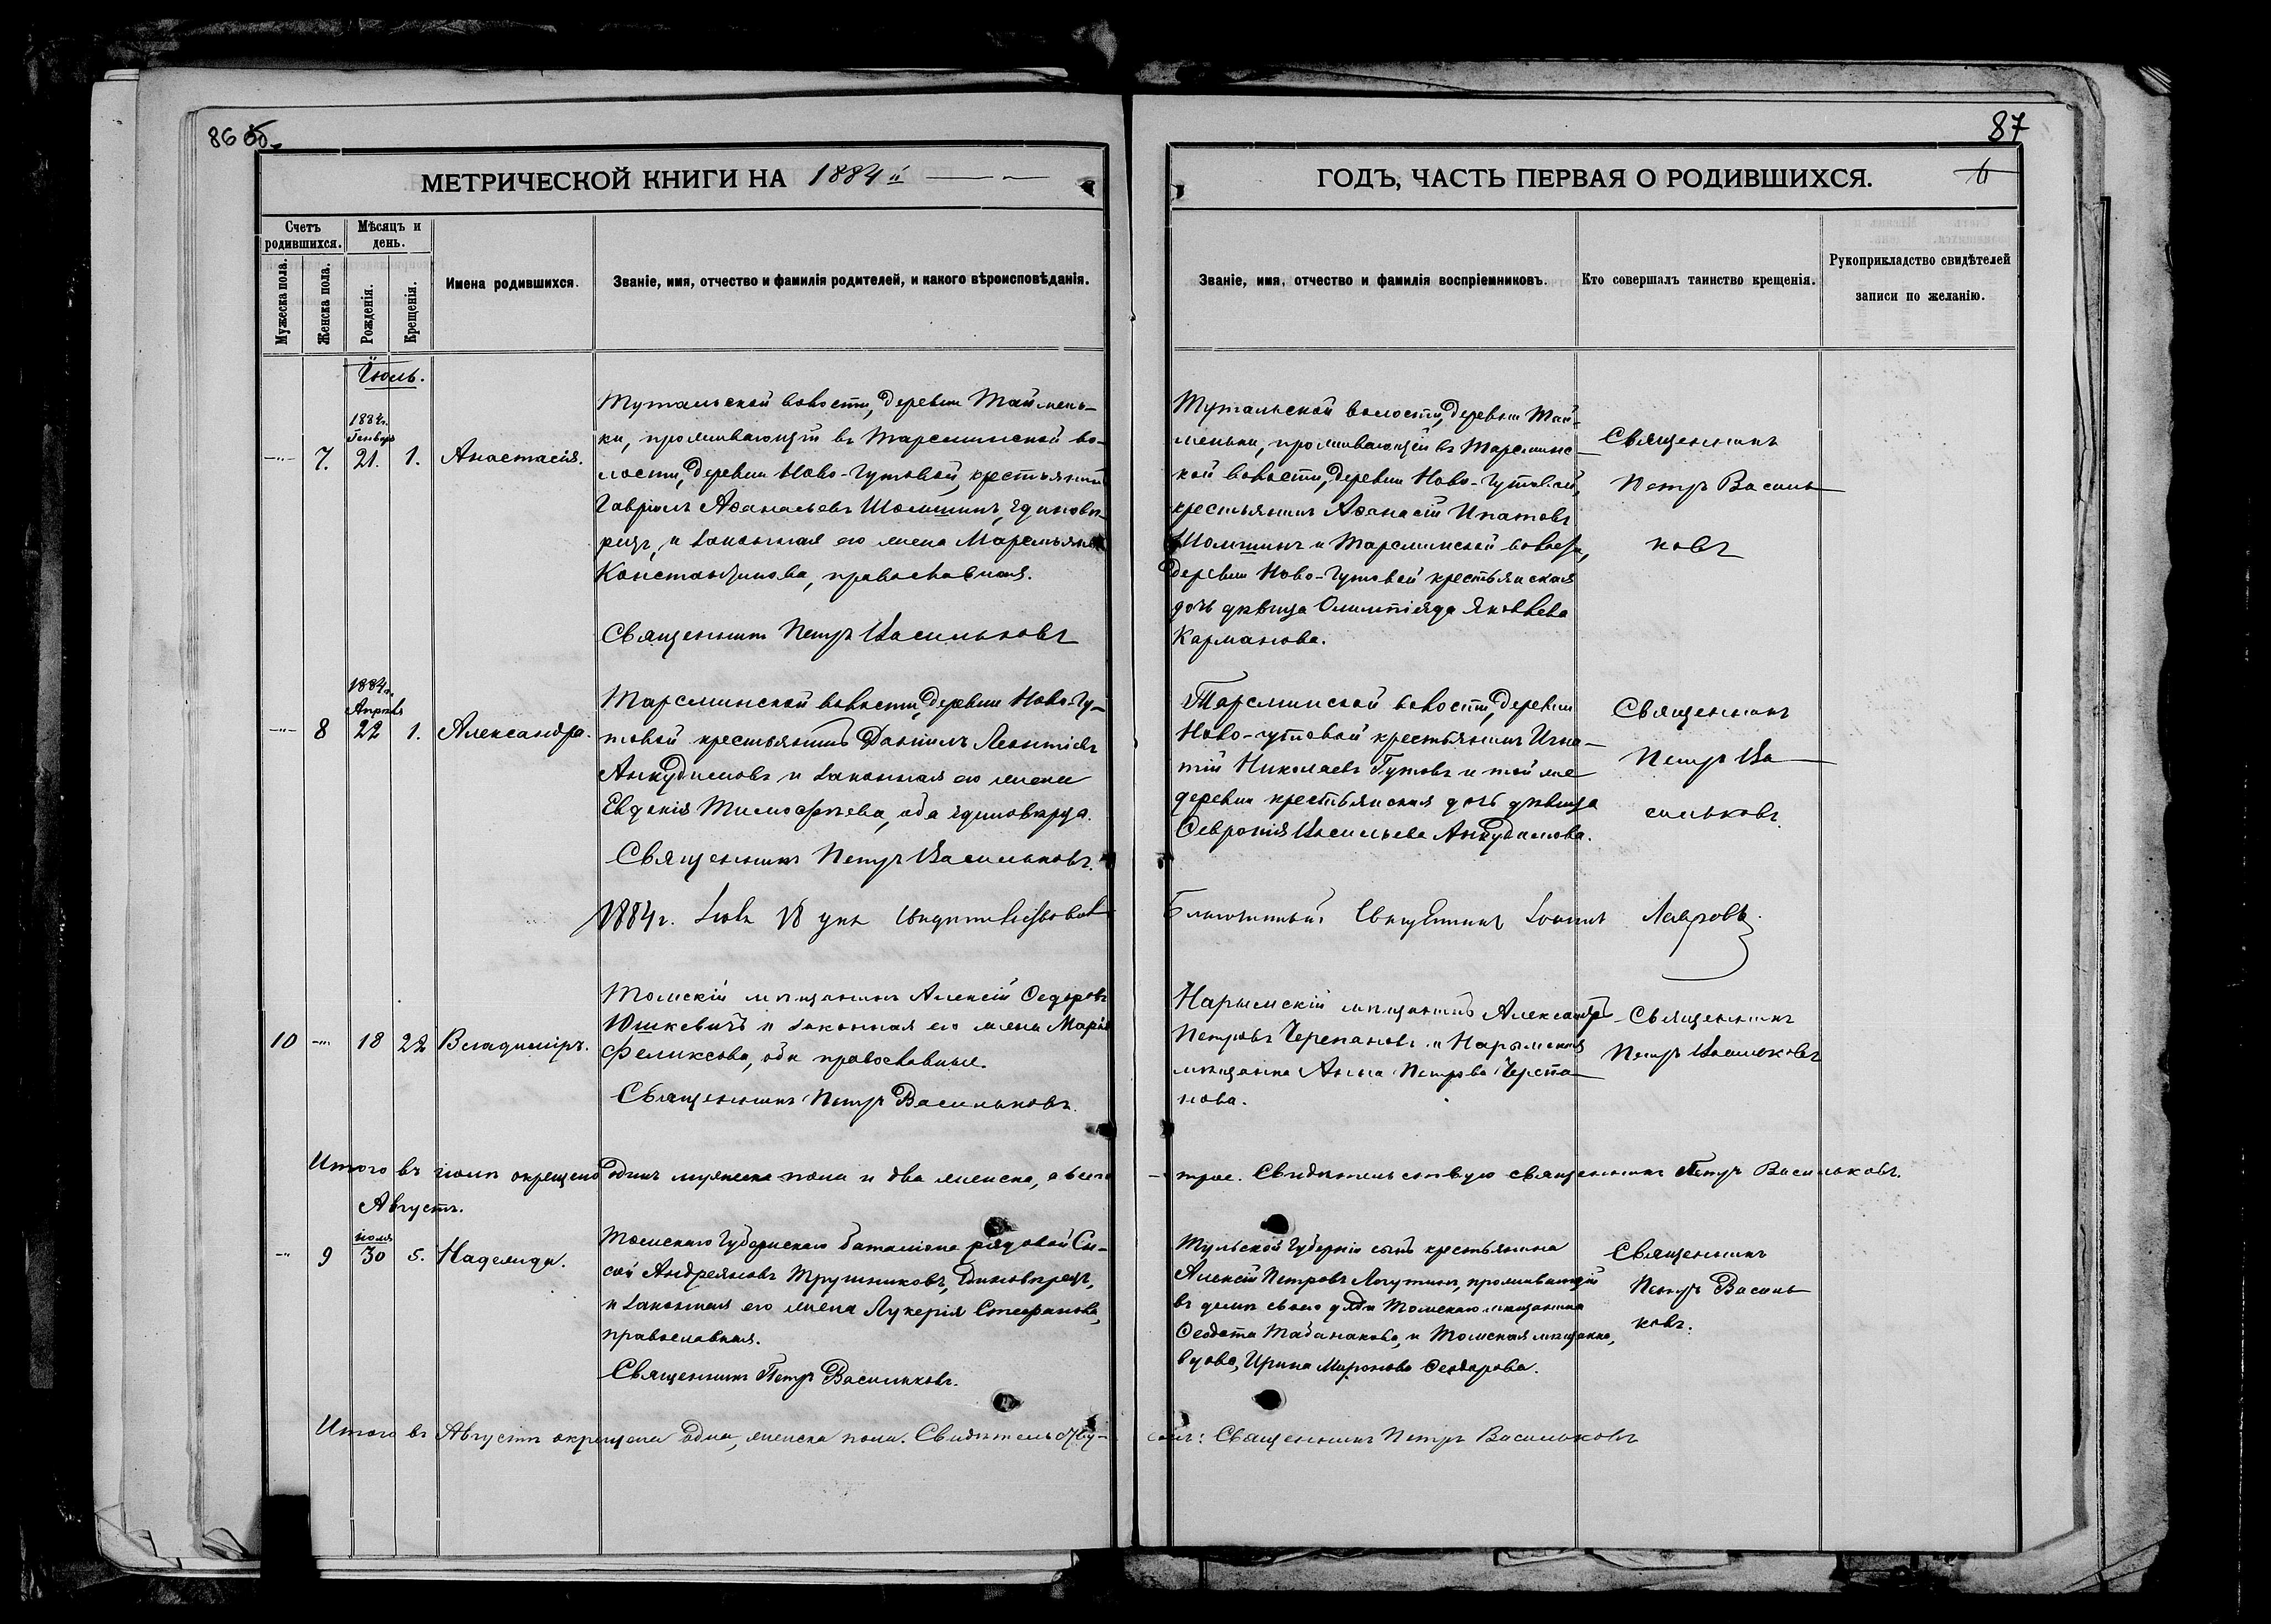 86 об.
МЕТРИЧЕСКОЙ КНИГИ НА 1884 й
Счетъ родившихся.
Мѣсяцъ и день.
Мужеска пола.
Женска пола.
Рожденія.
Крещенія.
Имена родившихся.
Званіе, имя, отчество и фамилія родителей, и какого вѣроисповѣданія.
Іюль.
1884г.
Генваря
7. 21. 1. Анастасія.
Тутальской волости, деревни Таймень-
ки, проживающій въ Тарсминской во-
лости, деревни Ново-Гутовой, крестьянинъ
Гавріилъ Аѳанасьевъ Шомшинъ, единовѣ-
рецъ, и законная его жена Маремьяна
Константинова, православная.
Священникъ Петръ Васильковъ
1884г.
Апрѣль
8 22 1. Александра.
Тарсминской волости, деревни Ново-Гу-
товой крестьянинъ Даніилъ Леонтіевъ
Анкудимовъ и законная его жена
Евдокія Тимоѳѣева, оба единовѣрца.
Священникъ Петръ Васильковъ.
1884г. Іюля 18 дня свидѣтельствовалъ
10 18 22 Владиміръ.
Томскій мѣщанинъ Алексій Ѳедоровъ
Юшкевичъ и законная его жена Марія
Феликсова, оба православные.
Священникъ Петръ Васильковъ.
Итого въ іюлѣ окрещено одинъ мужеска пола и два женска, а всего
Августъ.
іюля
9 30 5. Надежда.
Томскаго Губернскаго баталіона рядовой Сы-
сой Андреяновъ Трушниковъ, единовѣрецъ,
и законная его жена Лукерія Стефанова,
православная.
Священникъ Петръ Васильковъ.
Итого въ Августѣ окрещена одна, женска пола. Свидѣтельству-
87
ГОДЪ, ЧАСТЬ ПЕРВАЯ О РОДИВШИХСЯ.
6
Званіе, имя, отчество и фамилія воспріемниковъ.
Кто совершалъ таинство крещенія.
Рукоприкладство свидѣтелей
записи по желанію.
Тутальской волости, деревни Тай-
меньки, проживающій въ Тарсминс-
кой волости, деревни Ново-Гутовой,
крестьянинъ Аѳанасій Ипатовъ
Шомшинъ и Тарсминской волости,
деревни Ново-Гутовой крестьянская
дочь дѣвица Олимпіяда Яковлева
Карманова.
Священникъ
Петръ Василь
ковъ
Тарсминской волости, деревни
Ново-гутовой крестьянинъ Игна-
тій Николаевъ Гутовъ и той же
деревни крестьянская дочь дѣвица
Ѳевронія Васильева Анкудимова.
Священникъ
Петръ Ва
сильковъ.
Благочинный Священникъ Іоаннъ Лавровъ.
Нарымскій мѣщанинъ Александръ
Петровъ Черепановъ и Нарымская
мѣщанка Анна Петрова Черепа-
нова.
Священникъ
Петръ Васильковъ
трое. Свидѣтельствую священникъ Петръ Васильковъ.
Тульской Губерніи сынъ крестьянина
Алексій Петровъ Логутинъ, проживающій
въ домѣ своего дяди Томскаго мѣщанина
Ѳеодота Табанакова, и Томская мѣщанка,
вдова, Ирина Миронова Ѳеодорова.
Священникъ
Петръ Василь
ковъ.
Священникъ Петръ Васильковъ